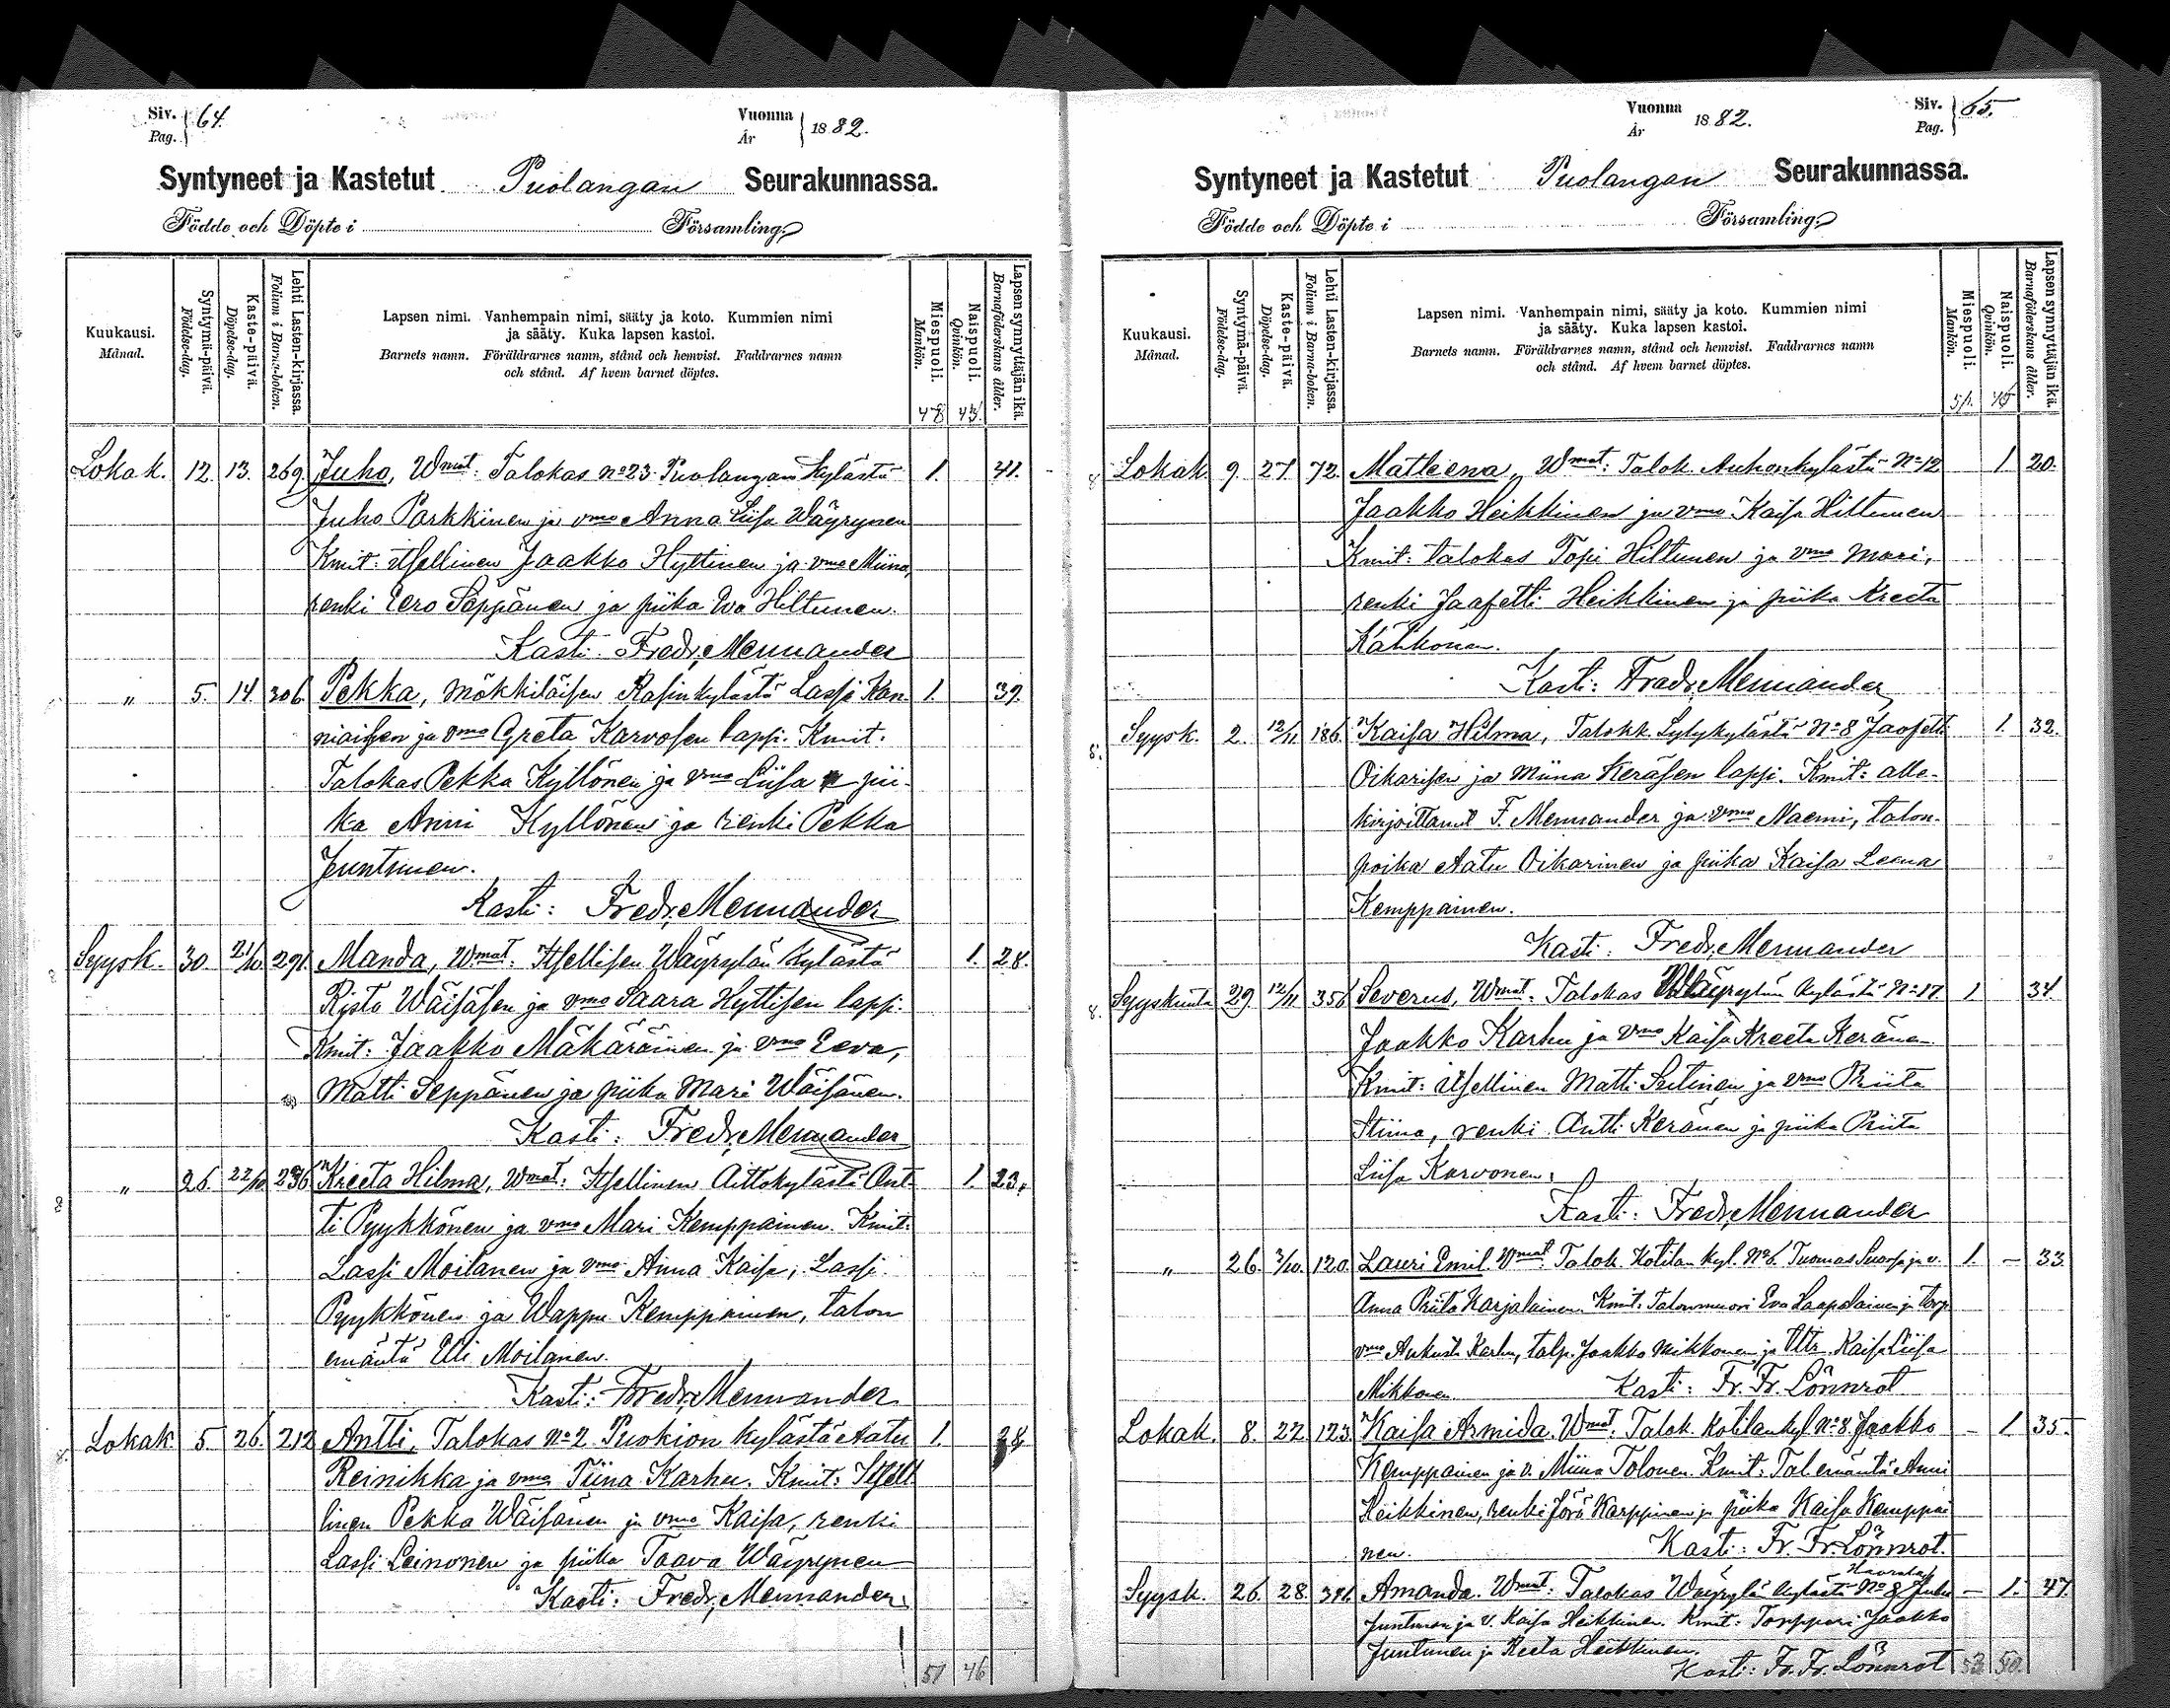 Siv. 64.
Pag.
Vuonna
År 1882.
Syntyneet ja Kastetut Puolangan Seurakunnassa.
Födde och Döpte i Församling.
Kuukausi.
Månad.
Syntymä-päivä.
Födelse-dag.
Kaste-päivä.
Döpelse-dag.
Lehti Lasten-kirjassa.
Folium i Barna-boken.
Lapsen nimi. Vanhempain nimi, sääty ja koto. Kummien nimi
ja sääty. Kuka lapsen kastoi.
Barnets namn. Föräldrarnes namn, stånd och hemvist. Faddrarnes namn
och stånd. Af hvem barnet döptes.
Miespuoli.
Mankön.
Naispuoli.
Qvinkön.
Lapsen synnyttäjän ikä.
Barnaföderskans ålder.
48 43.
Lokak. 12. 13. 269. Juho, Wmat: Talokas No 23 Puolangan kylästä 1. 41.
Juho Parkkinen ja vmo Anna Liisa Wäyrynen
Kmit: itsellinen Jaakko Hyttinen ja vmo Miina,
renki Eero Seppänen ja piika Eva Hiltunen.
Kasti: Fredr. Mennander
" 5. 14. 306. Pekka, mökkiläisen Rasinkylästä Lassi Kan- 1. 39.
niaisen ja vmo Greta Karvosen lapsi. Kmit.
Talokas Pekka Kyllönen ja vmo Liisa pii-
ka Anni Kyllönen ja renki Pekka
Juntunen.
Kasti: Fredr. Mennander
Syysk. 30. 21/10 291. Manda, Wmat: Itsellisen Wäyrylän kylästä 1. 28.
Risto Wäisäsen ja vmo Saara Hyttisen lapsi.
Kmit: Jaakko Mäkäräinen ja vmo Eeva,
Matti Seppänen ja piika Mari Wäisänen.
Kasti: Fredr. Mennander
" 26. 22/10 236. Kreeta Hilma, Wmat: Itsellinen Aittokylästä Ant- 1. 23.
ti Pyykkönen ja vmo Mari Kemppainen. Kmit:
Lassi Moilanen ja vmo Anna Kaisa, Lassi
Pyykkönen ja Wappu Kemppainen, talon
emäntä Elli Moilanen.
Kasti: Fredr. Mennander
Lokak. 5. 26. 212 Antti, Talokas No 2 Puokion kylästä Aatu 1. 28
Reinikka ja vmo Tiina Karhu. Kmit: Itsel-
linen Pekka Wäisänen ja vmo Kaisa, renki
Lassi Leinonen ja piika Taava Wäyrynen
Kasti: Fredr. Mennander
51 46
Vuonna
År 1882.
Siv. 65.
Pag.
Syntyneet ja Kastetut Puolangan Seurakunnassa.
Födde och Döpte i Församling.
Kuukausi.
Månad.
Syntymä-päivä.
Födelse-dag.
Kaste-päivä.
Döpelse-dag.
Lehti Lasten-kirjassa.
Folium i Barna-boken.
Lapsen nimi. Vanhempain nimi, sääty ja koto. Kummien nimi
ja sääty. Kuka lapsen kastoi.
Barnets namn. Föräldrarnes namn, stånd och hemvist. Faddrarnes namn
och stånd. Af hvem barnet döptes.
Miespuoli.
Mankön.
Naispuoli.
Qvinkön.
Lapsen synnyttäjän ikä.
Barnaföderskans ålder.
Lokak. 9. 27. 72. Matleena, Wmat: Talok. Auhonkylästä No 12 1. 20.
Jaakko Heikkinen ja vmo Kaisa Hiltunen
Kmit: talokas Topi Hiltunen ja vmo Mari,
renki Jaafetti Heikkinen ja piika Kreeta
Kähkönen.
Kasti: Fredr. Mennander
Syysk. 2. 12/11. 186. Kaisa Hilma, Talokk. Sylykylästä No 8 Jaafetti 1. 32.
Oikarisen ja Miina Keräsen lapsi. Kmit: alle-
kirjoittanut F. Mennander ja vmo Naemi, talon-
poika Aatu Oikarinen ja piika Kaisa Leena
Kemppainen.
Kasti: Fredr. Mennander
Syyskuuta 29. 12/11 356 Severus, Wmat: Talokas Wäyrylän kylästä No 17. 1. 34.
Jaakko Karhu ja vmo Kaisa Kreeta Keränen
Kmit: itsellinen Matti Seitinen ja vmo Priita
Stiina, renki Antti Keränen ja piika Priita
Liisa Karvonen.
Kasti: Fredr. Mennander
" 26. 3/10. 120. Lauri Emil. Vmat: Talok. Kotilan kyl. No 6. Tuomas ja v. 1. – 33.
Anna Priita Karjalainen. Kmit: Talonmuori Eva Laapolainen ja torp.
vmo Aukusti Karhu, talp. Jaakko Mikkonen ja Kaisa Liisa
Mikkonen. Kasti: Fr. Fr. Lönnrot
Lokak. 8. 22. 123. Kaisa Armida. Wmat: Talok. Kotilankyl No 8. Jaakko – 1. 35.
Kemppainen ja v. Miina Tolonen. Kmit: Tal. emäntä Anni
Heikkinen, renki Jörö Karppinen ja piika Kaisa Kemppai
nen. Kasti: Fr. Fr. Lönnrot.
Syysk. 26. 28. Amanda. Wmat: Talokas Wäyrylä kylästä No 8 Juho – 1. 47.
Juntunen ja v. Kaisa Heikkinen. Kmit: Torppari Jaakko
Juntunen ja Reeta Heikkinen.
Kasti: Fr. Fr. Lönnrot 53. 50.